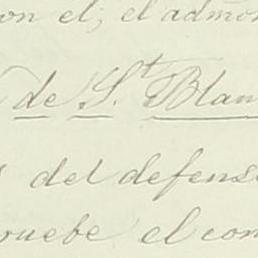 on el; el admon
de S.t Blan
del defens
ruebe el com